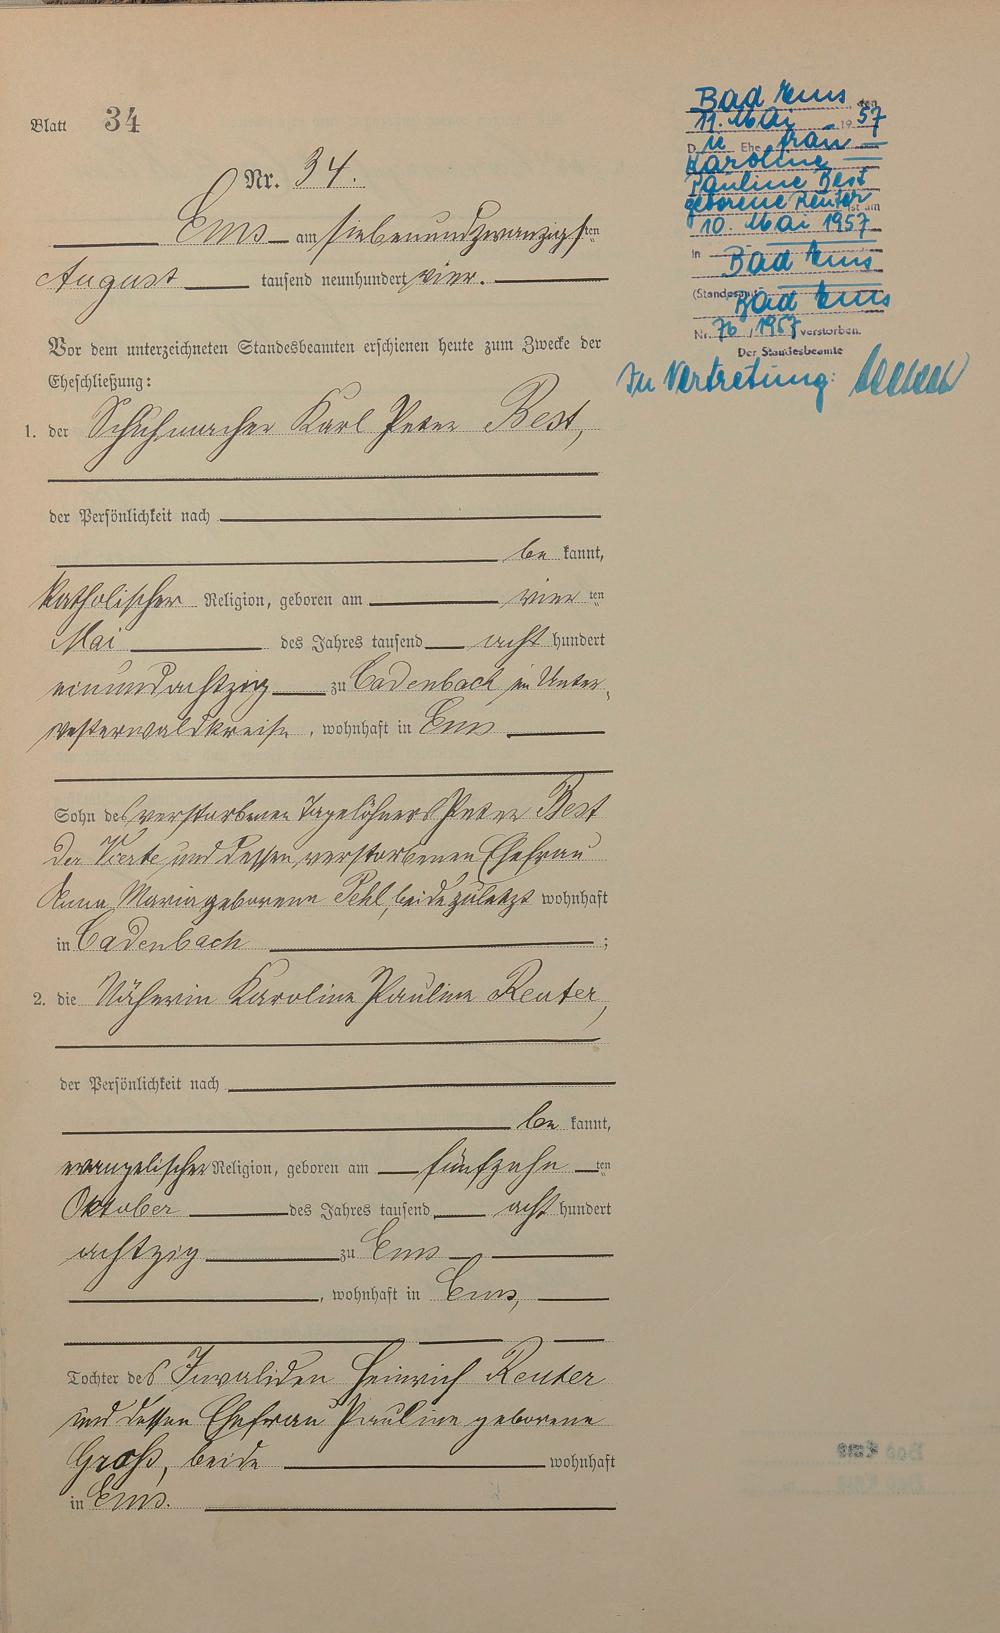 Blatt 34
Nr. 34.
Ems am siebenundzwanzigsten
August tausend neunhundert vier.
Vor dem unterzeichneten Standesbeamten erschienen heute zum Zwecke der
Eheschließung:
1. der Schuhmacher Karl Peter Best,
der Persönlichkeit nach
be kannt,
katholischer Religion, geboren am vier ten
Mai des Jahres tausend acht hundert
einundachtzig zu Cadenbach im Unter-
westerwaldkreise, wohnhaft in Ems
Sohn des verstorbenen Tagelöhners Peter Best
der Vierte und dessen verstorbenen Ehefrau
Anna Maria geborene Pehl, beide zuletzt wohnhaft
in Cadenbach ;
2. die Näherin Karoline Pauline Reuter,
der Persönlichkeit nach
be kannt,
evangelischer Religion, geboren am fünfzehn ten
Oktober des Jahres tausend acht hundert
achtzig zu Ems
, wohnhaft in Ems,
Tochter des Invaliden Heinrich Reuter
und dessen Ehefrau Pauline geborene
Groß, beide wohnhaft
in Ems.
Bad Ems, den
11. Mai 1957
D ie Ehefrau
Karoline
Pauline Best
geborene Reuter ist am
10. Mai 1957
in Bad Ems
(Standesamt Bad Ems
Nr. 76, 1957 verstorben.
Der Standesbeamte
In Vertretung: